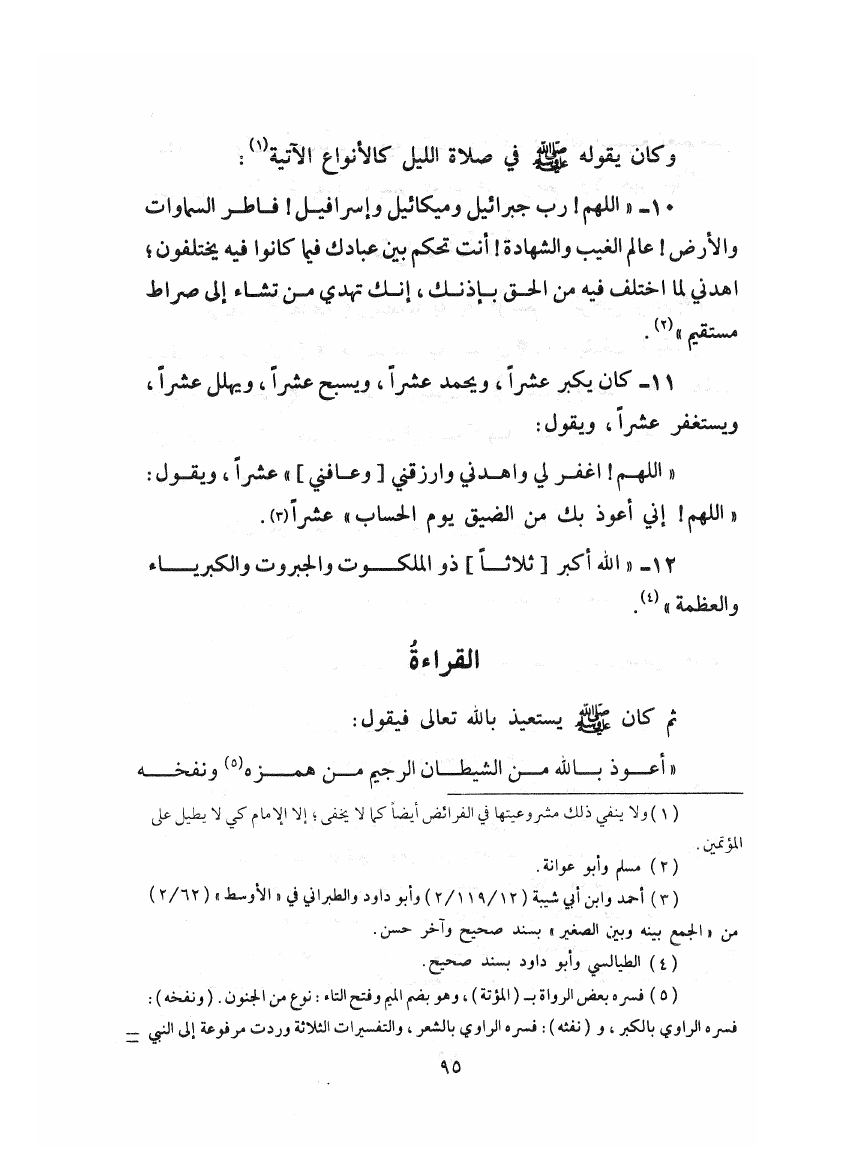 وكان يقوله ﷺ في صلاة الليل كالأنواع الآتية(١) :
١٠ـ « اللهم ! رب جبرائيل وميكائيل وإسرافيـل ! فـاطـر السماوات
والأرض ! عالم الغيب والشهادة ! أنت تحكم بين عبادك فيما كانوا فيه يختلفون ؛
اهدني لما اختلف فيه من الحـق بـإذنـك ، إنـك تهدي مـن تشـاء إلى صـراط
مستقيم »(٢) .
١١ـ كان يكبر عشراً ، ويحمد عشراً ، ويسبح عشراً ، ويهلل عشراً ،
ويستغفر عشراً ، ويقول :
« اللهـم ! اغفـر لي واهـدني وارزقني [ وعـافني ] » عشراً ، ويقـول :
« اللهم ! إني أعوذ بك من الضيق يوم الحساب » عشراً(٣) .
١٢ـ « الله أكبر [ ثلاثـاً ] ذو الملكـوت والجبروت والكبريـاء
والعظمة »(٤) .
القراءةُ
ثم كان ﷺ يستعيذ بالله تعالى فيقول :
« أعـوذ بـالله مـن الشيطـان الرجيم مـن همـزه(٥) ونفخـه
(١) ولا ينفي ذلك مشروعيتها في الفرائض أيضاً كما لا يخفى ؛ إلا الإمام كي لا يطيل على
المؤتمين .
(٢) مسلم وأبو عوانة .
(٣) أحمد وابن أبي شيبة (٢/١١٩/١٢) وأبو داود والطبراني في « الأوسط » (٢/٦٢)
من « الجمع بينه وبين الصغير » بسند صحيح وآخر حسن .
(٤) الطيالسي وأبو داود بسند صحيح .
(٥) فسره بعض الرواة بـ ( المؤتة ) ، وهو بضم الميم وفتح التاء : نوع من الجنون . ( ونفخه ) :
فسره الراوي بالكبر ، و ( نفثه ) : فسره الراوي بالشعر ، والتفسيرات الثلاثة وردت مرفوعة إلى النبي =
٩٥